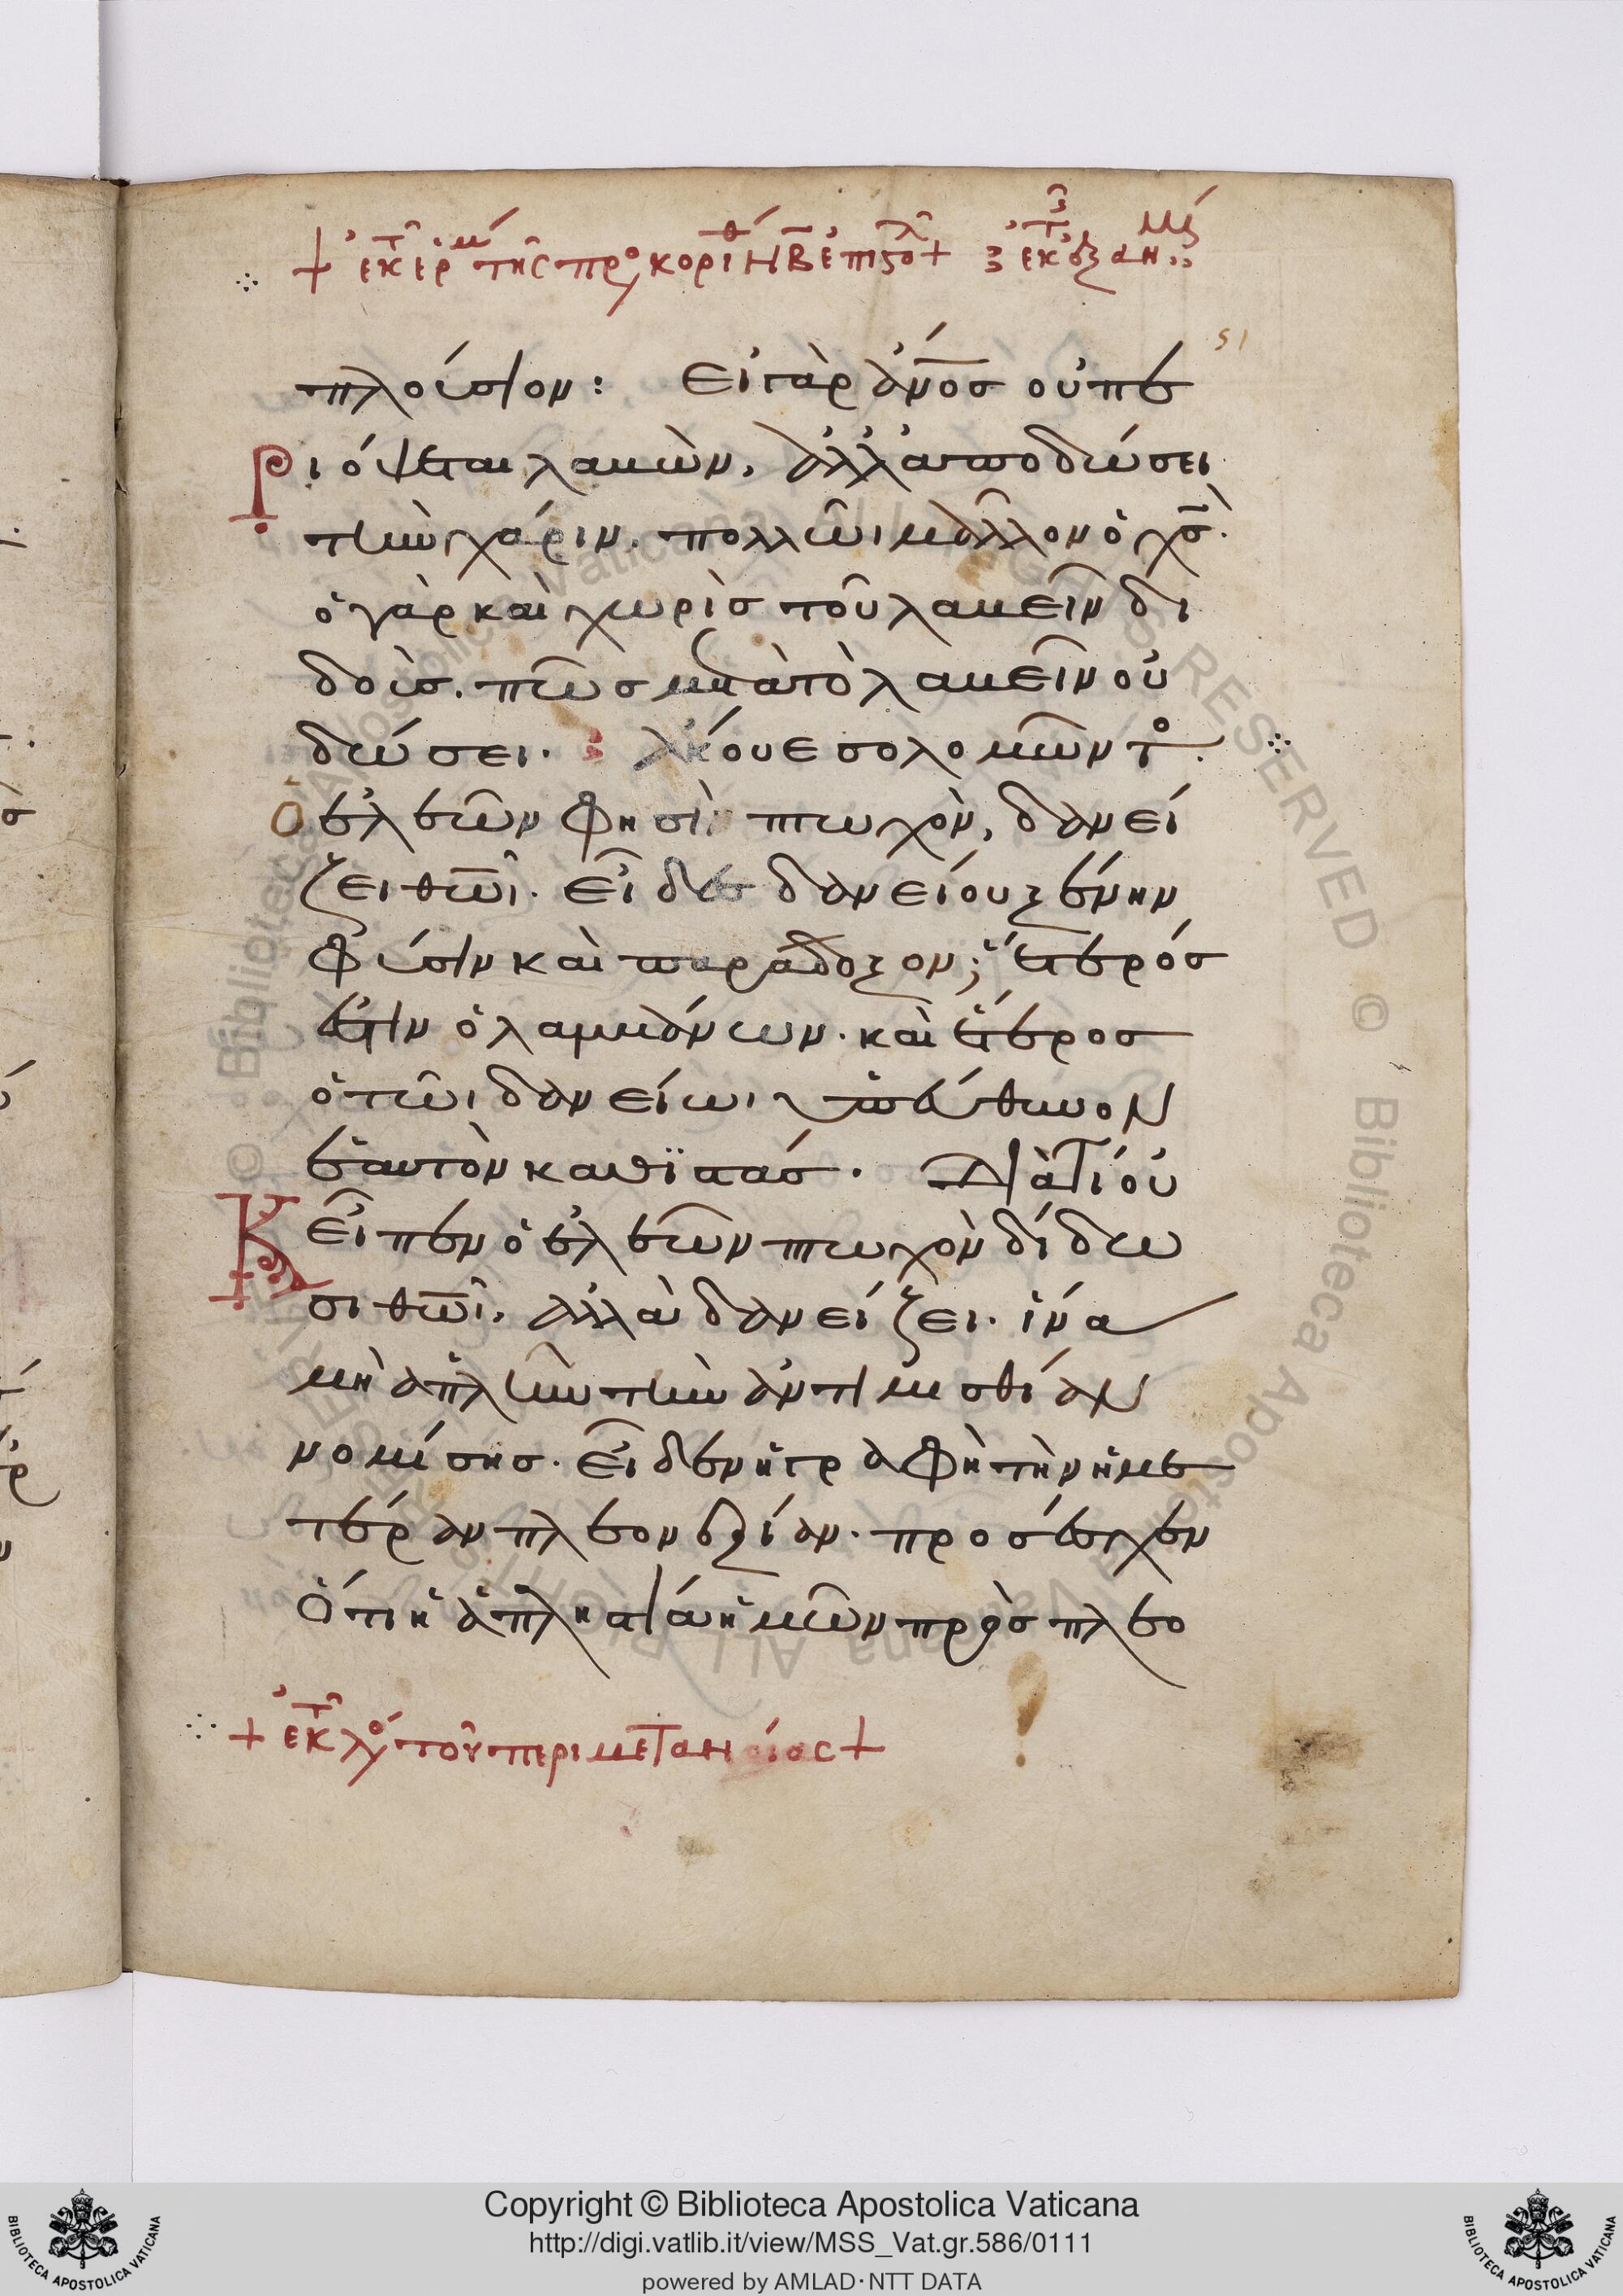 + ἐκ τ ἑρμ τῆς πρὸς κορινθ Β ἐπιστολ +
51
πλούσιον: Εἰ γὰρ ἄνος οὐ πε
ριόψεται λαβὼν, ἀλλ' ἀποδώσει
τὴν χάριν. πολλῶι μᾶλλον ὁ χς.
ὁ γὰρ καὶ χωρὶς τοῦ λαβεῖν δι
δοὺς. πῶς μετὰ τὸ λαβεῖν οὐ
δώσει. Ἄκουε σολομῶντο.
Ὁ ἐλεῶν φησὶ πτωχὸν, δανεί
ζει θῶι. εἶδες δανείου ξένην
φύσιν καὶ παράδοξον; ἕτερός
ἐστιν ὁ λαμβάνων. καὶ ἕτερος
ὁ τῶι δανείωι ὑπεύθυνον
ἑαυτὸν καθϊστάς. Διατί οὐκ
εἶπεν ὁ ἐλεῶν πτωχὸν δίδω
σι θῶι, ἀλλὰ δανείζει. ἵνα
μὴ ἁπλῆν τὴν ἀντιμισθίαν
νομίσης. εἶδεν ἡ γραφὴ τὴν ἡμε
τέραν πλεονεξίαν. προσέσχεν
ὅτι ἡ ἀπληστία ἡμῶν πρὸς πλεο
+ ἐκ τ λόγ τοῦ περι μετανοίας +
Copyright © Biblioteca Apostolica Vaticana
http://digi.vatlib.it/view/MSS_Vat.gr.586/0111
powered by AMLAD·NTT DATA
BIBLIOTECA APOSTOLICA VATICANA
BIBLIOTECA APOSTOLICA VATICANA